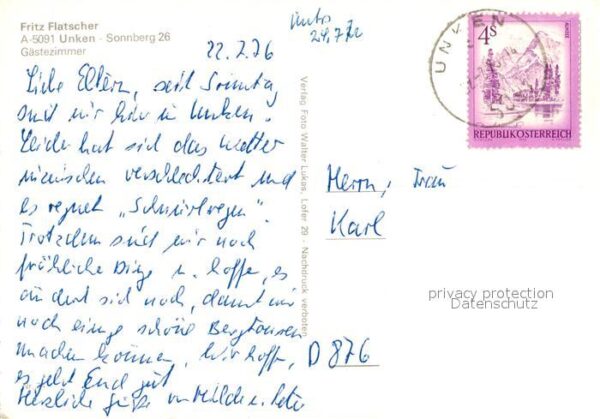 Fritz Flatscher
A-5091 Unken - Sonnberg 26
Gästezimmer
22.7.76
24.7.76
Liebe Eltern, seit Sonntag
sind wir hier in Unken.
Leider hat sich das Wetter
inzwischen verschlechtert und
es regnet „Schnürlregen".
Trotzdem sind wir noch
fröhliche Dinge u. hoffen, es
ändert sich noch, damit wir
noch einige schöne Bergtouren
machen können. Wir hoffen,
es geht Euch gut
Herzliche Grüße von Milde u.
Verlag Foto Walter Lukas, Lofer 29 - Nachdruck verboten
UNKEN
4S
REPUBLIK ÖSTERREICH
Herrn, Frau
Karl
D 876
privacy protection
Datenschutz